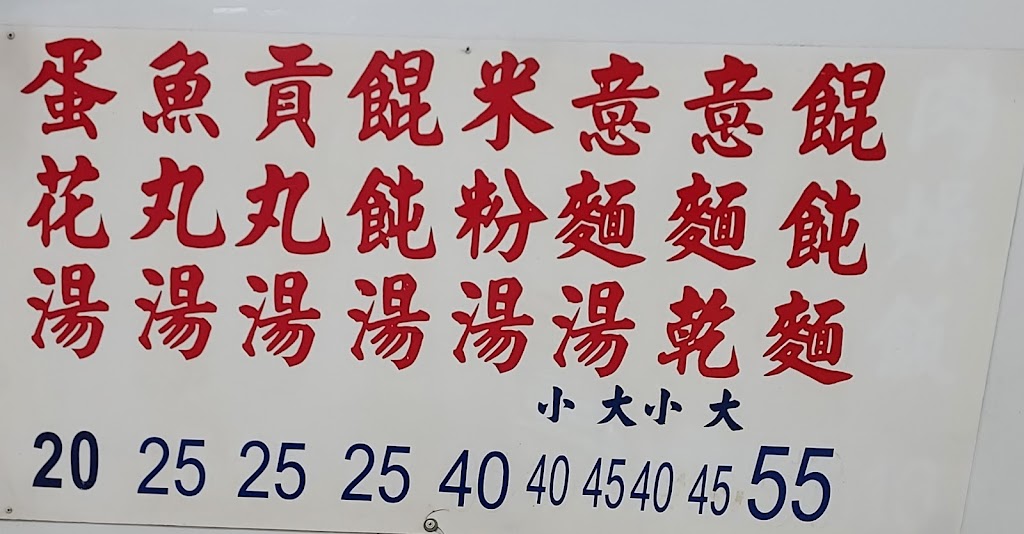 餛飩麵 55
意麵乾 小 40 大 45
意麵湯 小 40 大 45
米粉湯 40
餛飩湯 25
貢丸湯 25
魚丸湯 25
蛋花湯 20